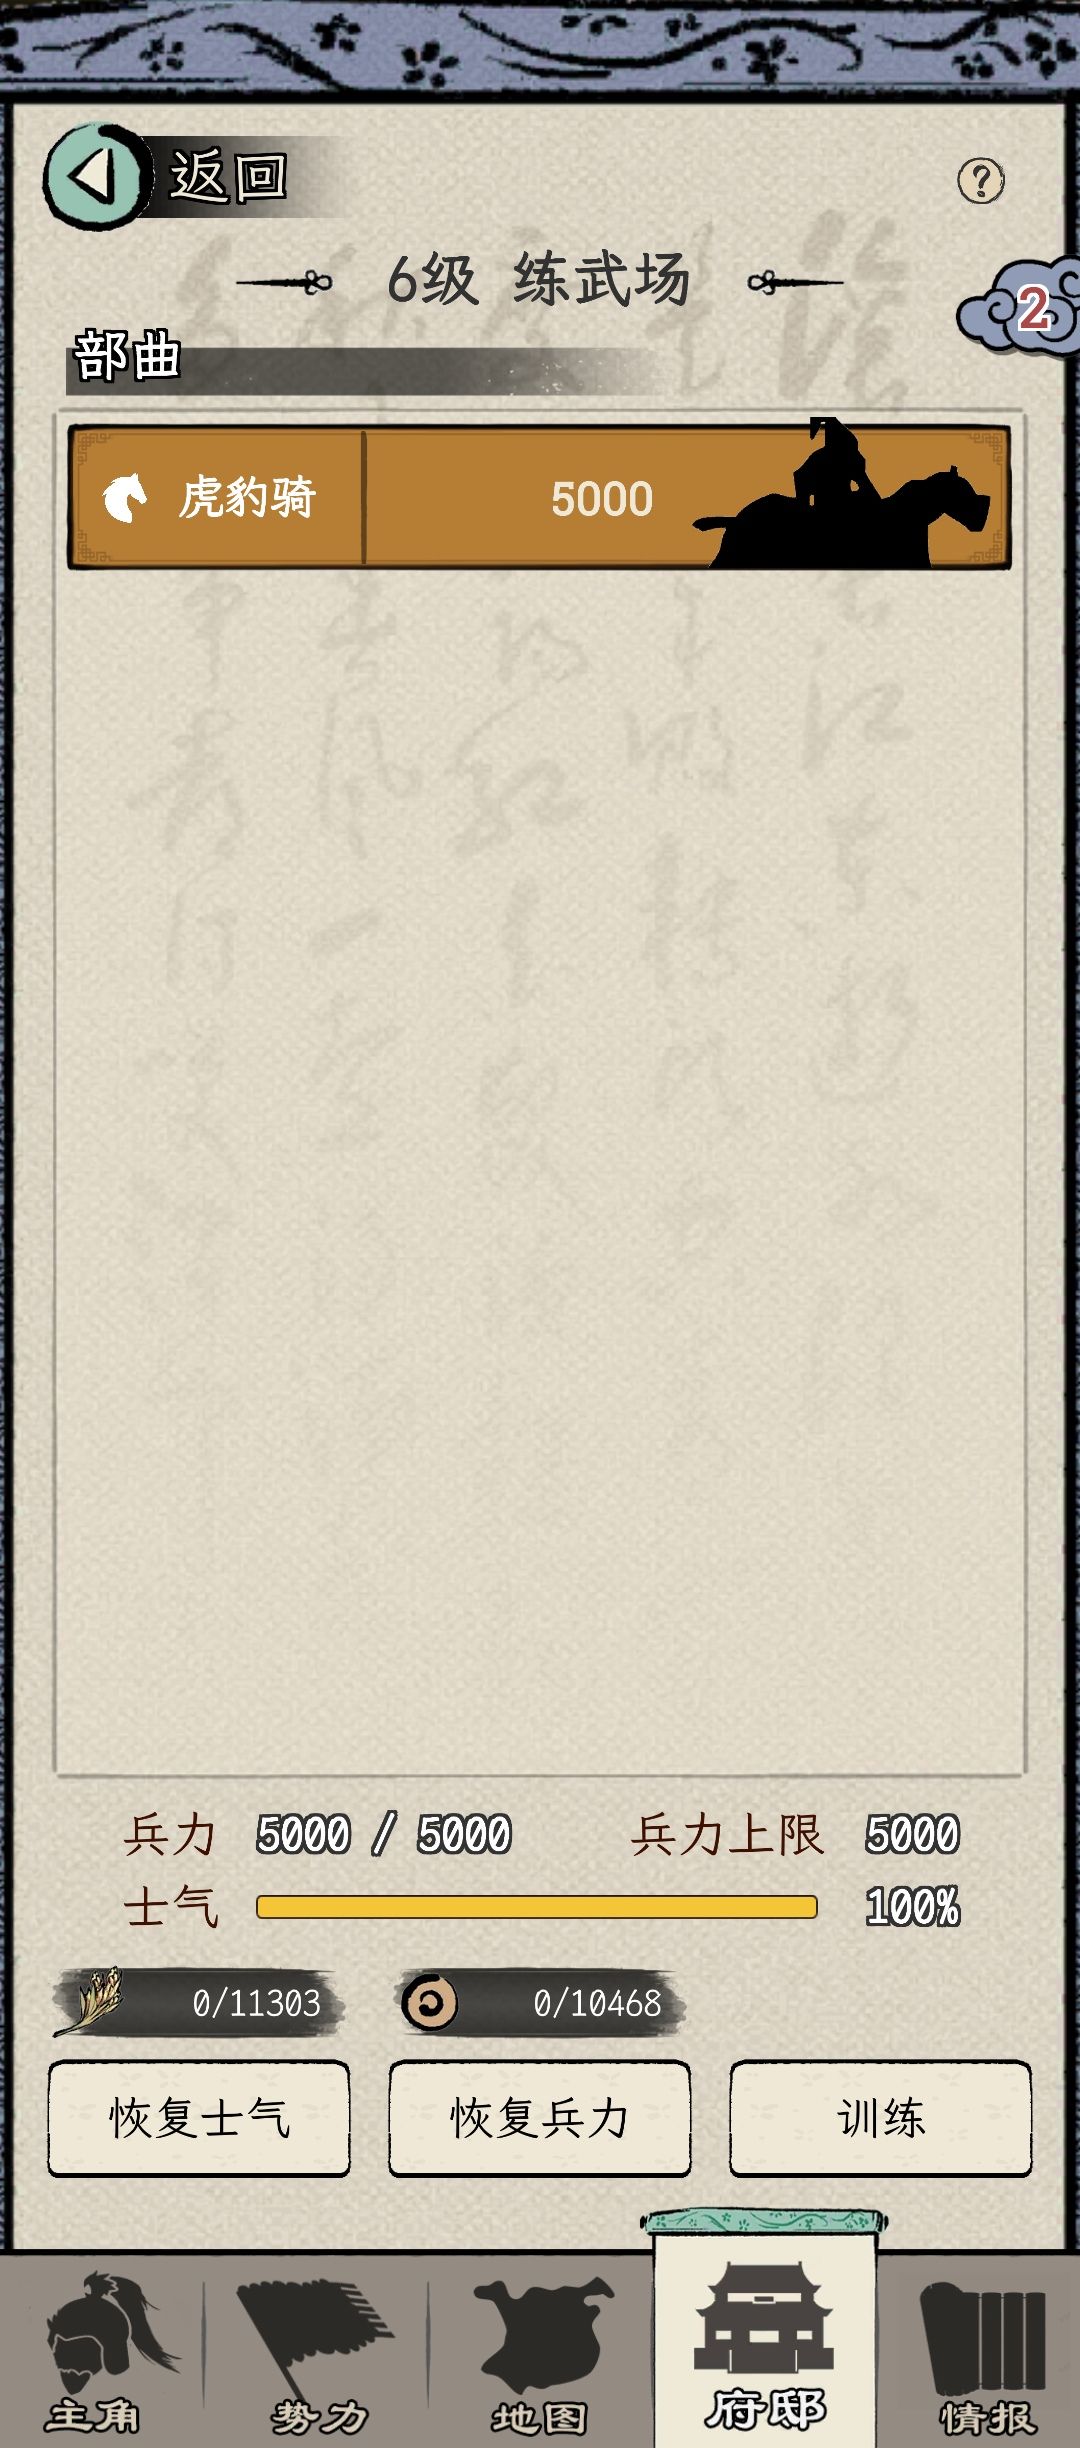 返回
?
6级 练武场
2
部曲
虎豹骑 5000
兵力 5000 / 5000 兵力上限 5000
士气 100%
0/11303 0/10468
恢复士气 恢复兵力 训练
主角 势力 地图 府邸 情报